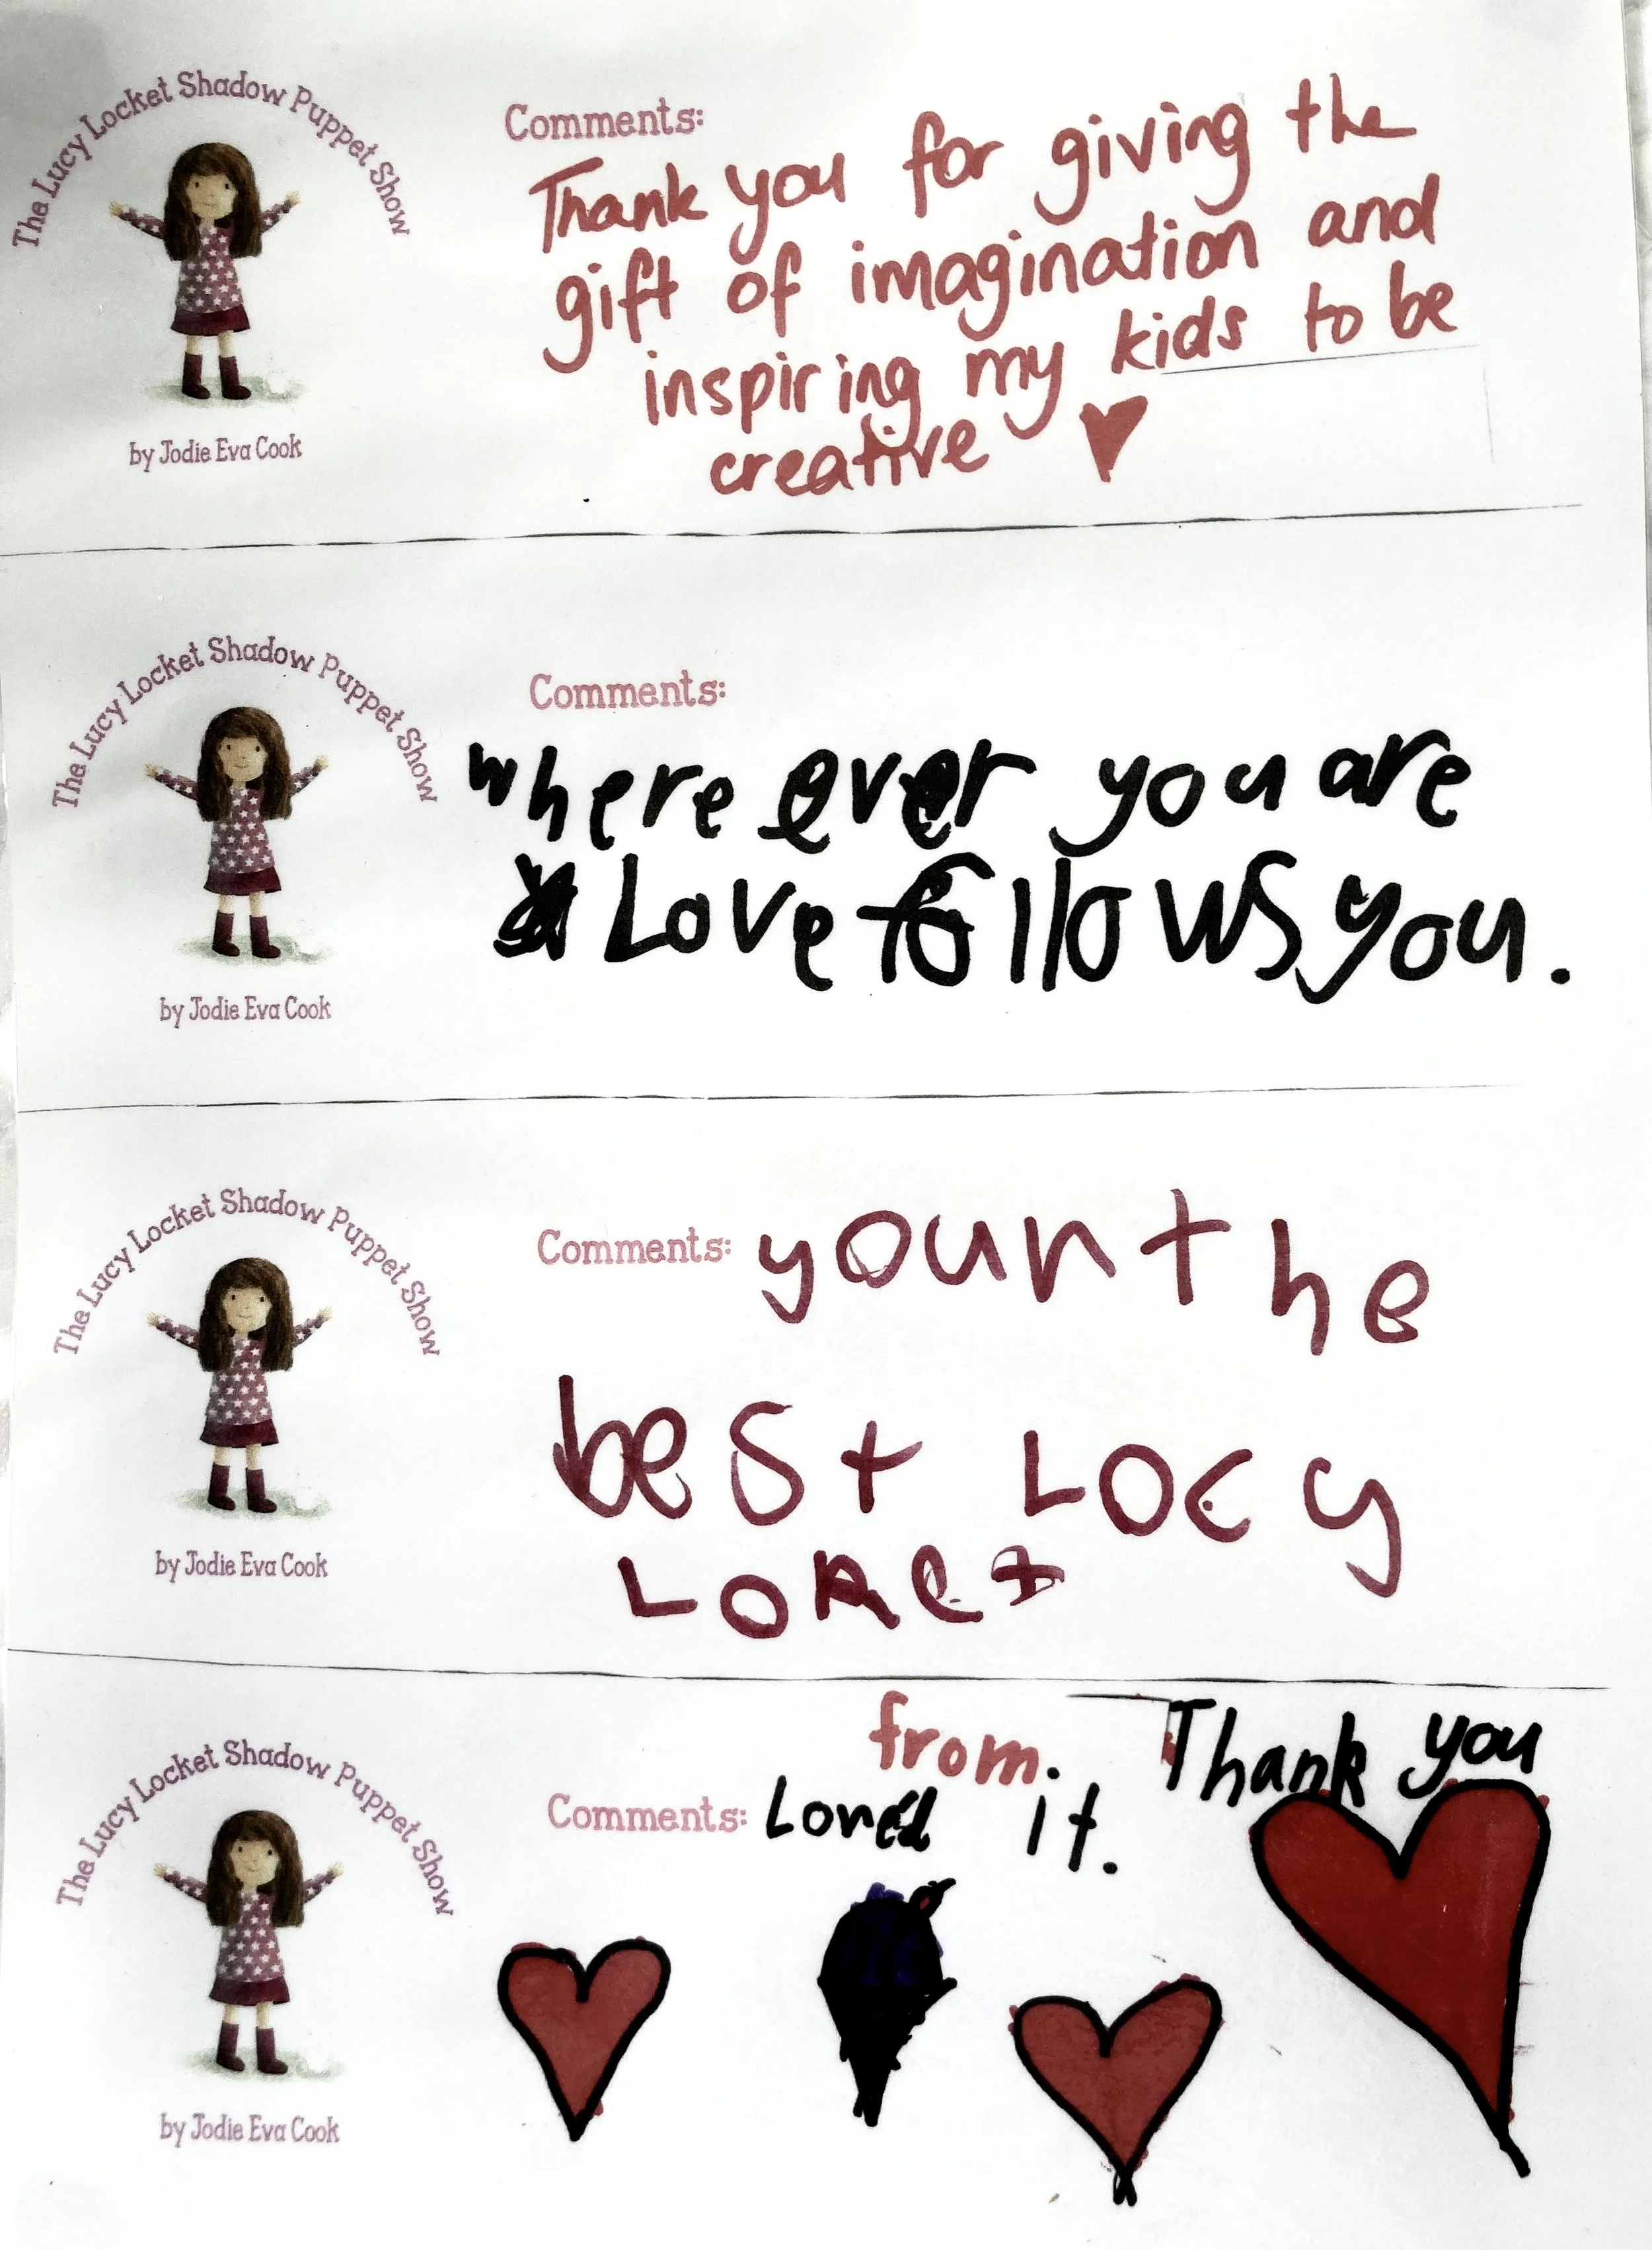 The Lucy Locket Shadow Puppet Show
by Jodie Eva Cook
Comments:
Thank you for giving the
gift of imagination and
inspiring my kids to be
creative
The Lucy Locket Shadow Puppet Show
by Jodie Eva Cook
Comments:
where ever you are
Love follows you.
The Lucy Locket Shadow Puppet Show
by Jodie Eva Cook
Comments: youn the
best Locy
The Lucy Locket Shadow Puppet Show
by Jodie Eva Cook
from. Thank you
Comments: Loved it.